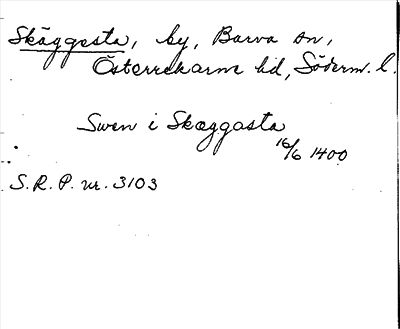 Skäggesta, by, Barva sn,
Österrekarne hd, Söderm. l.
Swen i Skæggasta
16/6 1400
S.R.P. nr. 3103